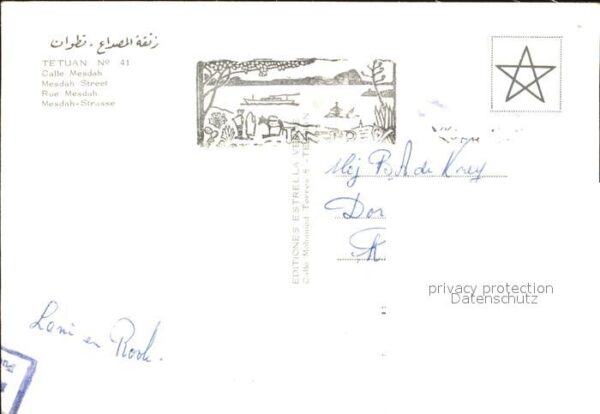 زنقة المصداع . تطوان
TETUAN Nº 41
Calle Mesdah
Mesdah Street
Rue Mesdah
Mesdah-Strasse
EDITIONES ESTRELLA
Calle Mohamed Torres 5 - TE
Mej B.A de Krey
Dor
privacy protection
Datenschutz
Loni en Rook.